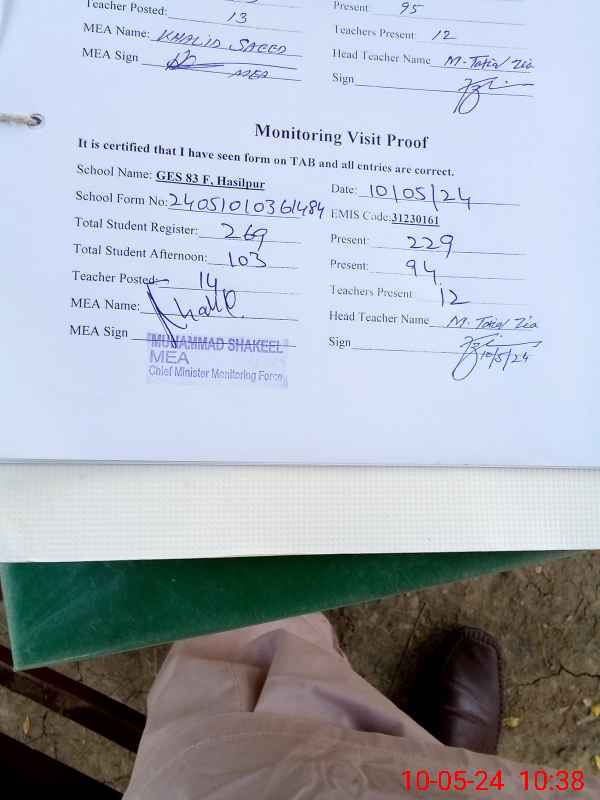 Teacher Posted: 13 Present: 95
MEA Name: KHALID SAEED Teachers Present: 12
MEA Sign MEA Head Teacher Name M. Tariq Zia
Sign
Monitoring Visit Proof
It is certified that I have seen form on TAB and all entries are correct.
School Name: GES 83 F, Hasilpur Date: 10/05/24
School Form No: 24051010361484 EMIS Code: 31230161
Total Student Register: 269 Present: 229
Total Student Afternoon: 103 Present: 94
Teacher Posted: 14 Teachers Present 12
MEA Name: Head Teacher Name M. Tariq Zia
MEA Sign Sign 10/5/24
MUHAMMAD SHAKEEL
MEA
Chief Minister Monitoring Force
10-05-24 10:38